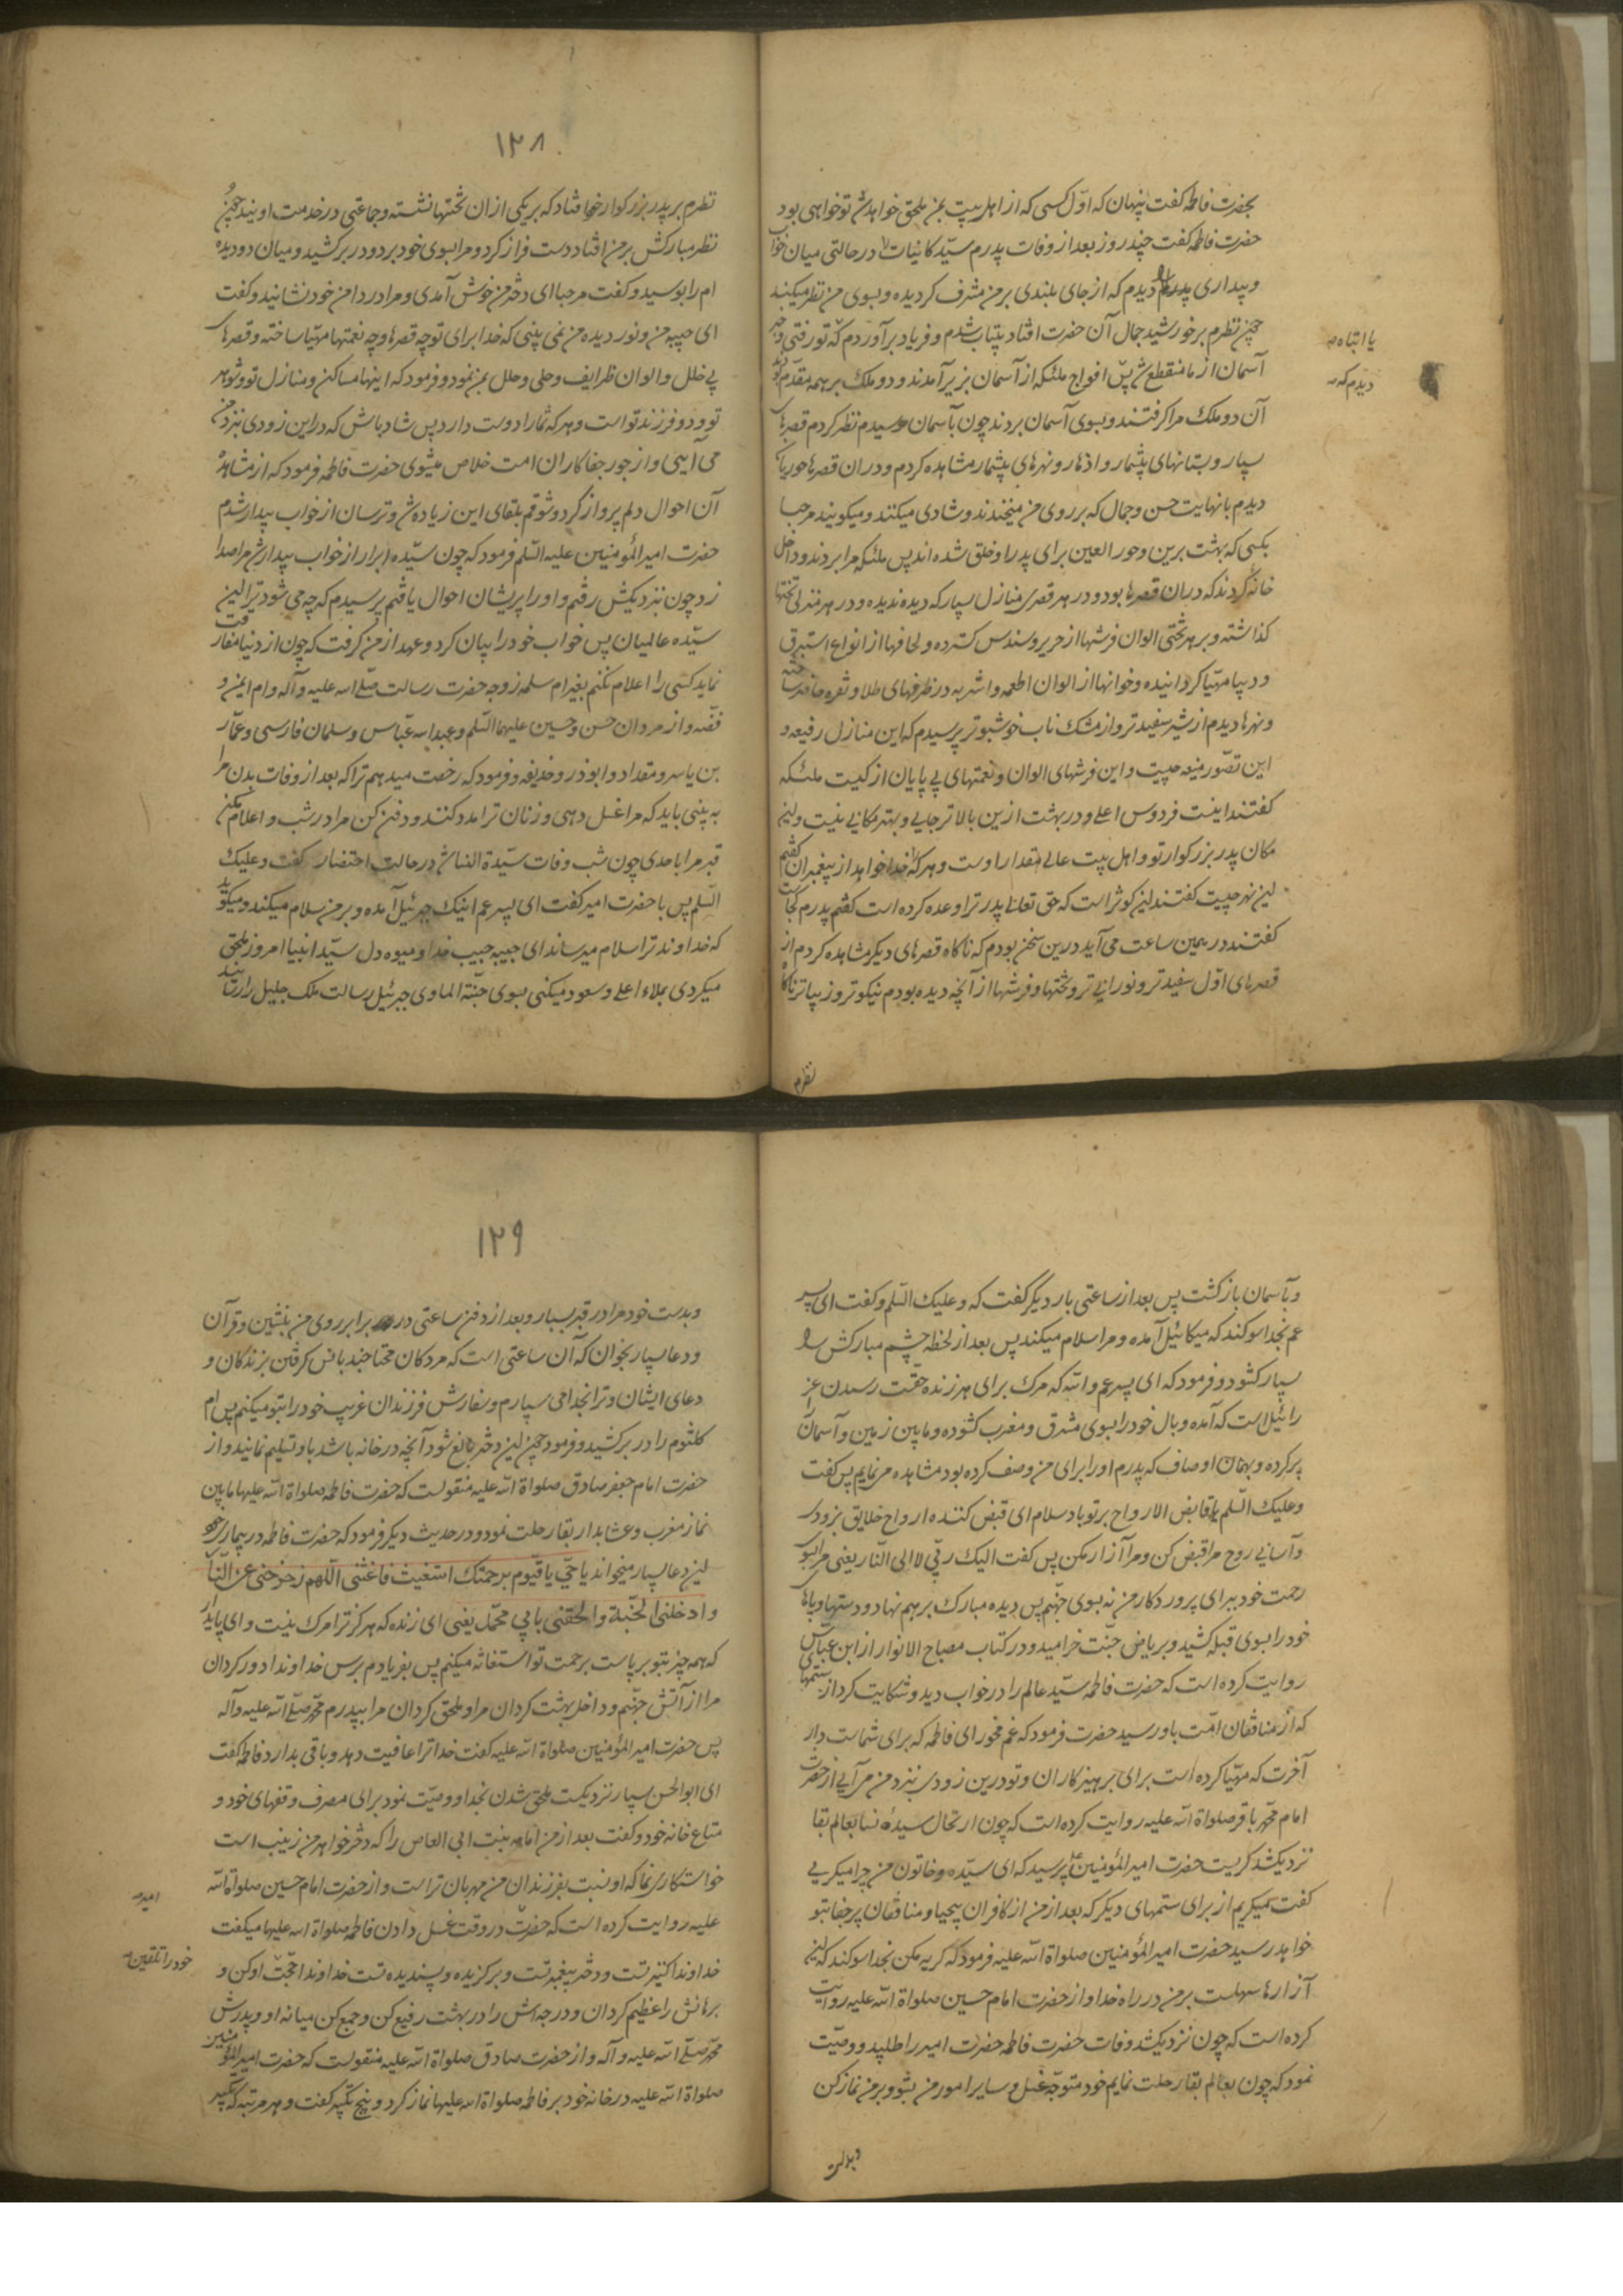 بحضرت فاطمه کفت پنهان که اوّل کسی که از اهل بیت بمن ملحق خواهد شد تو خواهی بود
حضرت فاطمه کفت چند روز بعد از وفات پدرم سیّد کاینات در حالتی میان خواب
و بیداری پدرم را دیدم که از جای بلندی بر من مشرف کردیده و بسوی من نظر میکند
چون نظرم بر خورشید جمال آن حضرت افتاد بیتاب شدم و فریاد برآوردم که تو رفتی و خبر
آسمان از ما منقطع شد پس افواج ملئکه از آسمان بزیر آمدند و دو ملک بر همه مقدّم بودند
آن دو ملک مرا کرفتند و بسوی آسمان بردند چون بآسمان رسیدم نظر کردم قصرهای
بسیار و بستانهای بیشمار و انهار و نهرهای بیشمار مشاهده کردم و در ان قصرها حوریان
دیدم با نهایت حسن و جمال که بر روی من میخندند و شادی میکنند و میکویند مرحبا
بکسی که بهشت برین و حور العین برای پدر او خلق شده اند پس ملئکه مرا بردند و داخل
خانه کردند که در ان قصرها بود و در هر قصری منازل بسیار که دیده ندیده و در هر منزلی تختها
کذاشته و بر هر تختی الوان فرشها از حریر و سندس کسترده و لحافها از انواع استبرق
و دیبا مهیّا کردانیده و خوانها از الوان اطعمه و اشربه در ظرفهای طلا و نقره حاضر ساخته
و نهرها دیدم از شیر سفیدتر و از مشک ناب خوشبوتر پرسیدم که این منازل رفیعه و
این تصوّر منیعه چیست و این فرشهای الوان و نعمتهای بی پایان از کیست ملئکه
کفتند اینست فردوس اعلی و در بهشت ازین بالاتر جایی و بهتر مکانی نیست و این
مکان پدر بزرکوار تو و اهل بیت عالی مقدار اوست و هر که را خدا خواهد از پیغمبران کفتم
این نهر چیست کفتند این کوثر است که حق تعالی پدر ترا وعده کرده است کفتم پدرم کجاست
کفتند در همین ساعت می آید درین سخن بودم که ناکاه قصرهای دیکر مشاهده کردم از
قصرهای اوّل سفیدتر و نورانی تر و تختها و فرشها از آنچه دیده بودم نیکوتر و زیباتر ناکاه
نظرم
یا انتباه
دیدم که
۱۲۸
نظرم بر پدر بزرکوار خود افتاد که بر یکی از ان تختها نشسته و جماعتی در خدمت اویند چون
نظر مبارکش بر من افتاد دست فراز کرد و مرا بسوی خود برد و در بر کشید و میان دو دیده
ام را بوسید و کفت مرحبا ای دختر من خوش آمدی و مرا در دامن خود نشانید و کفت
ای حبیبه من و نور دیده من نمی بینی که خدا برای تو چه قصرها و چه نعمتها مهیّا ساخته و قصرهای
بی خلل و الوان ظرایف و حلی و حلل بمن نمود و فرمود که اینها مساکن و منازل تو و شوهر
تو و دو فرزند تو است و هر که شما را دوست دارد پس شاد باش که در این زودی بنزد من
می آیی و از جور جفاکاران امت خلاص میشوی حضرت فاطمه فرمود که از مشاهده
آن احوال دلم پرواز کرد و شوقم بلقای این زیاده شد و ترسان از خواب بیدار شدم
حضرت امیر المؤمنین علیه السّلم فرمود که چون سیّده ابرار از خواب بیدار شد مرا صدا
زد چون بنزدیکش رفتم و او را پریشان احوال یافتم پرسیدم که چه می شود ترا این
سیّده عالمیان پس خواب خود را بیان کرد و عهد از من کرفت که چون از دنیا مفارقت
نماید کسی را اعلام نکنم بغیر ام سلمه زوجه حضرت رسالت صلی الله علیه و آله و ام ایمن و
فضّه و از مردان حسن و حسین علیهما السّلم و عبد الله عبّاس و سلمان فارسی و عمّار
بن یاسر و مقداد و ابوذر و حذیفه و فرمود که رخصت میدهم ترا که بعد از وفات بدن مرا
به بینی باید که مرا غسل دهی و زنان ترا مدد کنند و دفن کن مرا در شب و اعلام مکن
قبر مرا باحدی چون شب وفات سیّدة النسا شد در حالت احتضار کفت و علیک
السّلم پس با حضرت امیر کفت ای پسر عم اینک جبرئیل آمده و بر من سلام میکند و میکوید
که خداوند ترا سلام میرساند ای حبیبه حبیب خدا و میوه دل سیّد انبیا امروز ملحق
میکردی بملاء اعلی و صعود میکنی بسوی جنّة الماوی جبرئیل رسالت ملک جلیل را رسانید
و بآسمان بازکشت پس بعد از ساعتی بار دیکر کفت که و علیک السّلم و کفت ای پسر
عم بخدا سوکند که میکائیل آمده و مرا سلام میکند پس بعد از لحظه چشم مبارکش را
بسیار کشود و فرمود که ای پسر عم والله که مرک برای هر زنده حقّست رسیدن عز
رائیل است که آمده و بال خود را بسوی مشرق و مغرب کشوده و ما بین زمین و آسمان
پر کرده و بهمان اوصاف که پدرم او را برای من وصف کرده بود مشاهده مینمایم پس کفت
و علیک السّلم یا قابض الارواح بر تو باد سلام ای قبض کننده ارواح خلایق بزودی
و آسانی روح مرا قبض کن و مرا آزار مکن پس کفت الیک ربّی لا الی النّار یعنی مرا بسوی
رحمت خود ببر ای پروردکار من نه بسوی جهنّم پس دیده مبارک بر هم نهاد و دستها و پاهای
خود را بسوی قبله کشید و بریاض جنّت خرامید و در کتاب مصباح الانوار از ابن عبّاس
روایت کرده است که حضرت فاطمه سیّد عالم را در خواب دید و شکایت کرد از ستمهای
که از منافقان امّت باو رسید حضرت فرمود که غم مخور ای فاطمه که برای شماست دار
آخرت که مهیّا کرده است برای پرهیزکاران و تو درین زودی بنزد من می آیی از حضرت
امام محمّد باقر صلواة الله علیه روایت کرده است که چون ارتحال سیده نسا بعالم بقا
نزدیک شد کریست حضرت امیر المؤمنین پرسید که ای سیّده و خاتون من چرا میکریی
کفت میکریم از برای ستمهای دیکر که بعد از من از کافران بیحیا و منافقان پر جفا بتو
خواهد رسید حضرت امیر المؤمنین صلواة الله علیه فرمود که کریه مکن بخدا سوکند که این
آزارها سهلست بر من در راه خدا و از حضرت امام حسین صلواة الله علیه روایت
کرده است که چون نزدیک شد وفات حضرت فاطمه حضرت امیر را طلبید و وصیّت
نمود که چون بعالم بقا رحلت نمایم خود متوجّه غسل و سایر امور من بشو و بر من نماز کن
و بدست
۱۲۹
و بدست خود مرا در قبر بسپار و بعد از دفن ساعتی در برابر روی من بنشین و قرآن
و دعا بسیار بخوان که آن ساعتی است که مردکان محتاجند بانس کرفتن بزندکان و
دعای ایشان و ترا بخدا می سپارم و سفارش فرزندان غریب خود را بتو میکنم پس ام
کلثوم را در بر کشید و فرمود چون این دختر بالغ شود آنچه در خانه باشد باو تسلیم نمائید و از
حضرت امام جعفر صادق صلواة الله علیه منقولست که حضرت فاطمه صلواة الله علیها ما بین
نماز مغرب و عشا بدار بقا رحلت نمود و در حدیث دیکر فرمود که حضرت فاطمه در بیماری خود
این دعا بسیار میخواند یا حیّ یا قیّوم برحمتک استغیث فاغثنی اللّهم زحزحنی عن النّار
و ادخلنی الجنّة و الحقنی بابی محمّد یعنی ای زنده که هرکز ترا مرک نیست و ای پایدار
که همه چیز بتو برپاست برحمت تو استغاثه میکنم پس بفریادم برس خداوندا دور کردان
مرا از آتش جهنّم و داخل بهشت کردان مرا و ملحق کردان مرا بپدرم محمّد صلّی الله علیه و آله
پس حضرت امیر المؤمنین صلواة الله علیه کفت خدا ترا عافیت دهد و باقی بدارد فاطمه کفت
ای ابوالحسن بسیار نزدیکست ملحق شدن بخدا و وصیّت نمود برای مصرف وقفهای خود و
متاع خانه خود و کفت بعد از من امامه بنت ابی العاص را که دختر خواهر من زینب است
خواستکاری نما که او نسبت بفرزندان من مهربان تر است و از حضرت امام حسین صلواة الله
علیه روایت کرده است که حضرت در وقت غسل دادن فاطمه صلواة الله علیها میکفت
خداوندا کنیز تست و دختر پیغمبر تست و برکزیده و پسندیده تست خداوندا حجّت او کن و
برهانش را عظیم کردان و درجه اش را در بهشت رفیع کن و جمع کن میانه او و پدرش
محمّد صلّی الله علیه و آله و از حضرت صادق صلواة الله علیه منقولست که حضرت امیر المؤمنین
صلواة الله علیه در خانه خود بر فاطمه صلواة الله علیها نماز کرد و پنج تکبیر کفت و هر مرتبه که تکبیر
امیر
خود را تلقین